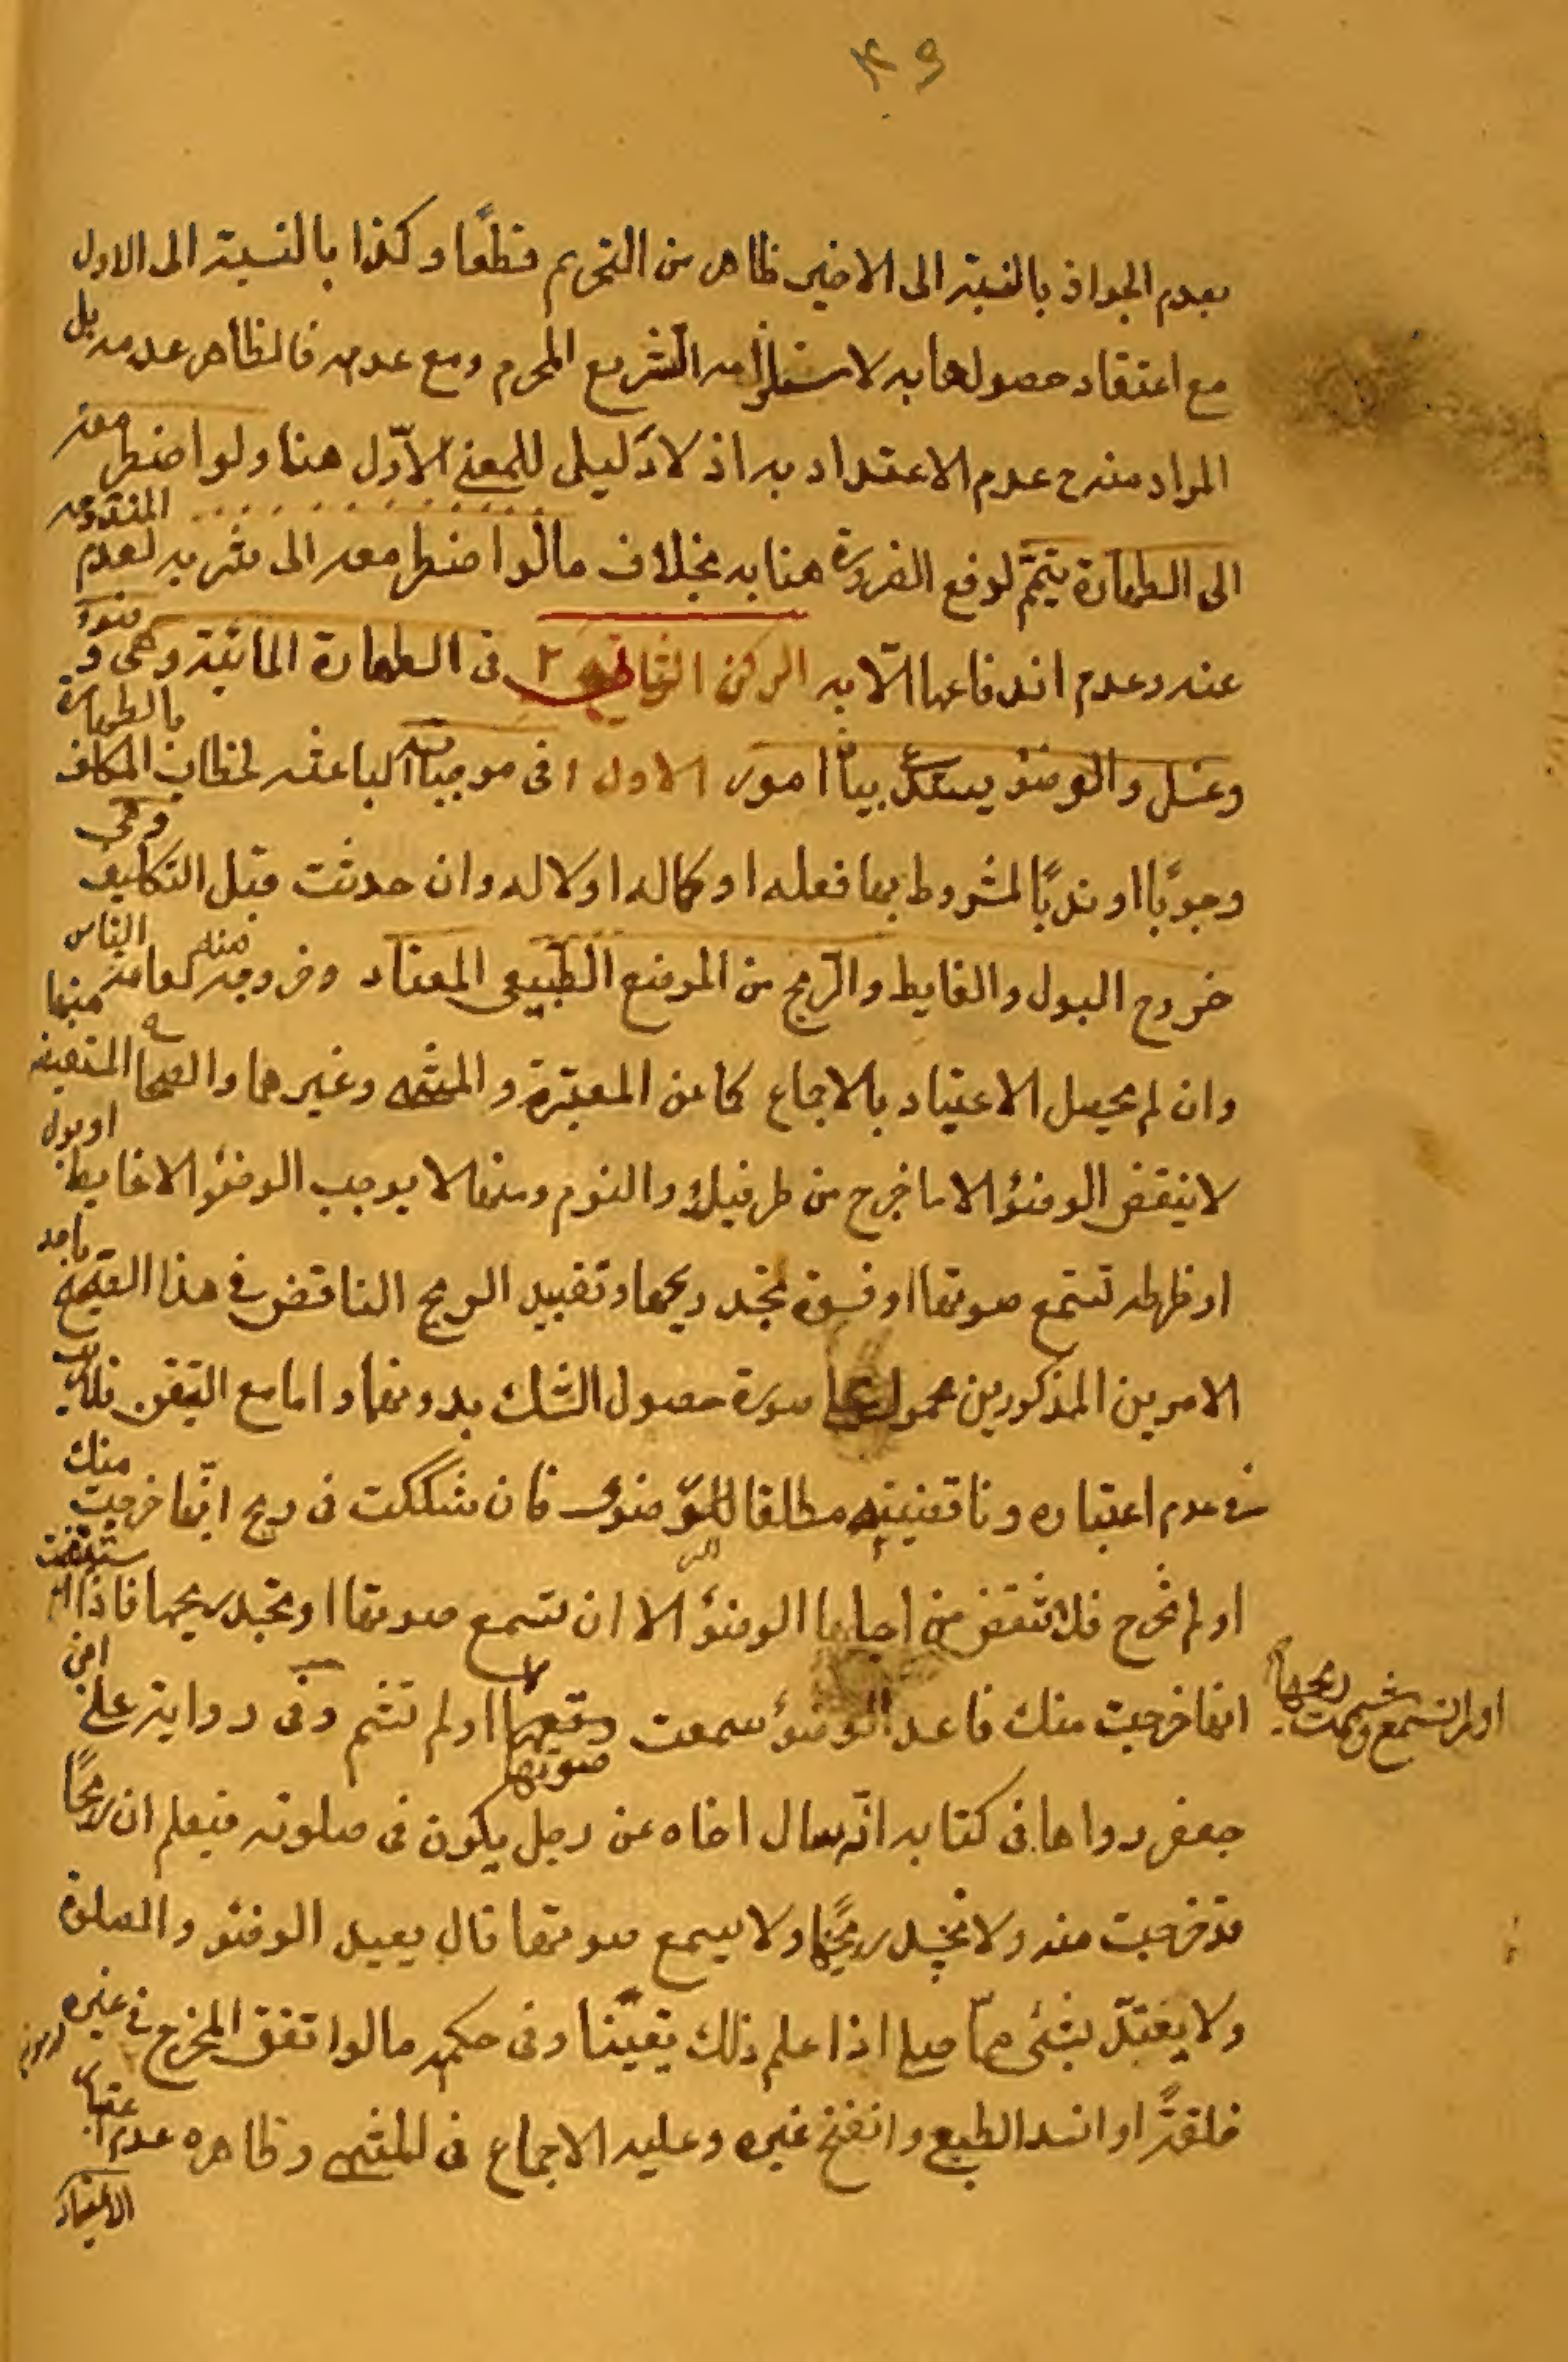 ٤٩
بعدم الجواز بالنسبة الى الاخير ظاهر من التحريم قطعًا وكذا بالنسبة الى الاول
مع اعتقاد حصولها به لاستلزامه التشريع المحرم ومع عدمه فالظاهر عدمه بل
المراد منه ح عدم الاعتداد به اذ لا دليل للمعنى الاوّل هنا ولو اضطر معه
الى الطهارة يتمّم لرفع الضرورة هنا به بخلاف ما لو اضطر معه الى شربه لعدم المندوحة
عنه وعدم اندفاعها الّا به الركن الثاني ٢ في الطهارة المائية وهى وضوء
وغسل والوضوء يستدعى بيان امور الاول ١ فى موجباته الباعثه لخطاب المكلف بالطهارة
وجوبًا او ندبًا لمشروط بها فعله او كماله او لا له وان حدثت قبل التكليف وهى
خروج البول والغايط والريح من الموضع الطبيعى المعتاد وخروجه منه لعامة الناس
وان لم يحصل الاعتياد بالاجماع كما عن المعتبر و المنتهى وغيرهما والصحاح المستفيضه منها
لا ينقض الوضوء الا ما خرج من طرفيك والنوم ومنها لا يوجب الوضوء الا غايط او بول
او ظرطه تسمع صوتها او فسوة تجد ريحها وتقييد الريح الناقض فى هذا الصحيح باحد
الامرين المذكورين محمول على صورة حصول الشك بدونها واما مع التيقن فلا ريب
فى عدم اعتباره وناقضيته مطلقا للرضوى فان شككت فى ريح انّها خرجت منك
او لم تخرج فلا تنقض من اجلها الوضوء الا ان تسمع صوتها او تجد ريحها فاذا استيقنت
انها خرجت منك فاعد الوضوء سمعت وقعها او لم تسمع شممت ريحها او لم تشم وفى رواية على اخى
جعفر رواها فى كتابه انّه سال اخاه عن رجل يكون فى صلوته فيعلم ان ريحًا
قد خرجت منه ولا يجد ريحها ولا يسمع صوتها قال يعيد الوضوء والصلوة
ولا يعتدّ بشئ ممّا صلى اذا علم ذلك يقينًا وفى حكمه ما لو اتفق المخرج فى غيره
خلقةً او انسد الطبيعى وانفتح غيره وعليه الاجماع فى المنتهى وظاهره عدم اعتبار
الاعتياد